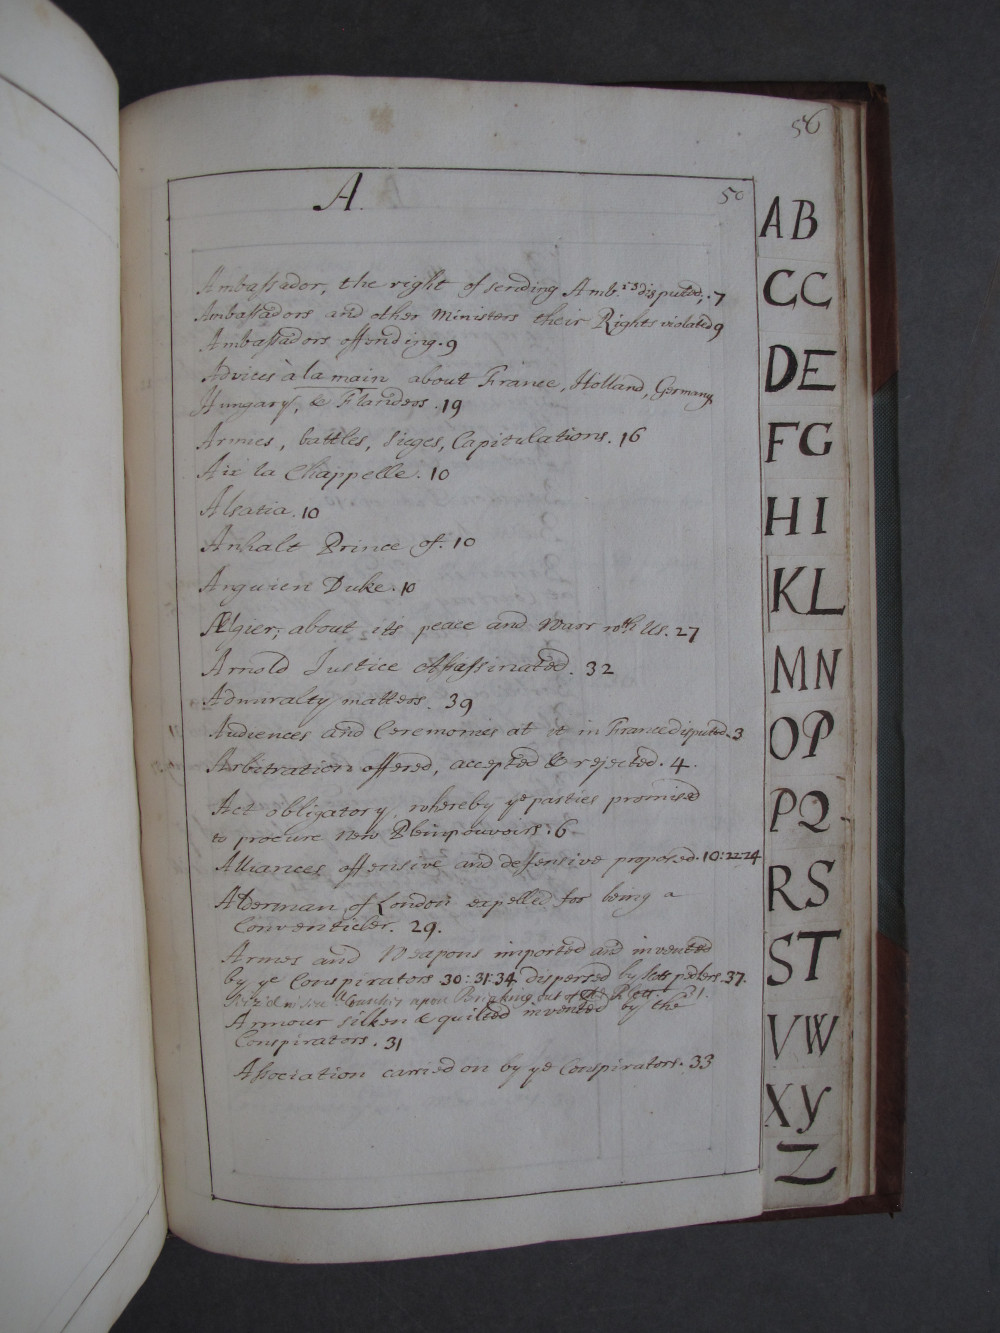 56
A.
50
Ambassador, the right of sending Amb.rs disputed, .7
Ambassadors and other Ministers their Rights violated 9
Ambassadors offending. 9
Advices à la main about France, Holland, Germany
Hungary, & Flanders. 19
Armies, battles, sieges, Capitulations. 16
Aix la Chappelle. 10
Alsatia. 10
Anhalt Prince of. 10
Arquien Duke. 10
Ælgier, about its peace and Warr wth Us. 27
Arnold Justice assassinated. 32
Admiralty matters. 39
Audiences and Ceremonies at it in France disputed. 3
Arbitration offered, accepted & rejected. 4.
Act obligatory, whereby ye parties promised
to procure new Pleinpouvoirs. 6
Alliances offensive and deffensive proposed. 10: 22-24
Alderman of London expelled for being a
Conventicler. 29.
Armes and Weapons imported and invented
by ye Conspirators 30: 31: 34 dispersed by pedlers 37.
upon Breaking out of the
Armour silken & quilted invented by the
Conspirators. 31
Association carried on by ye Conspirators. 33
AB
CC
DE
FG
HI
KL
MN
OP
PQ
RS
ST
VW
XY
Z